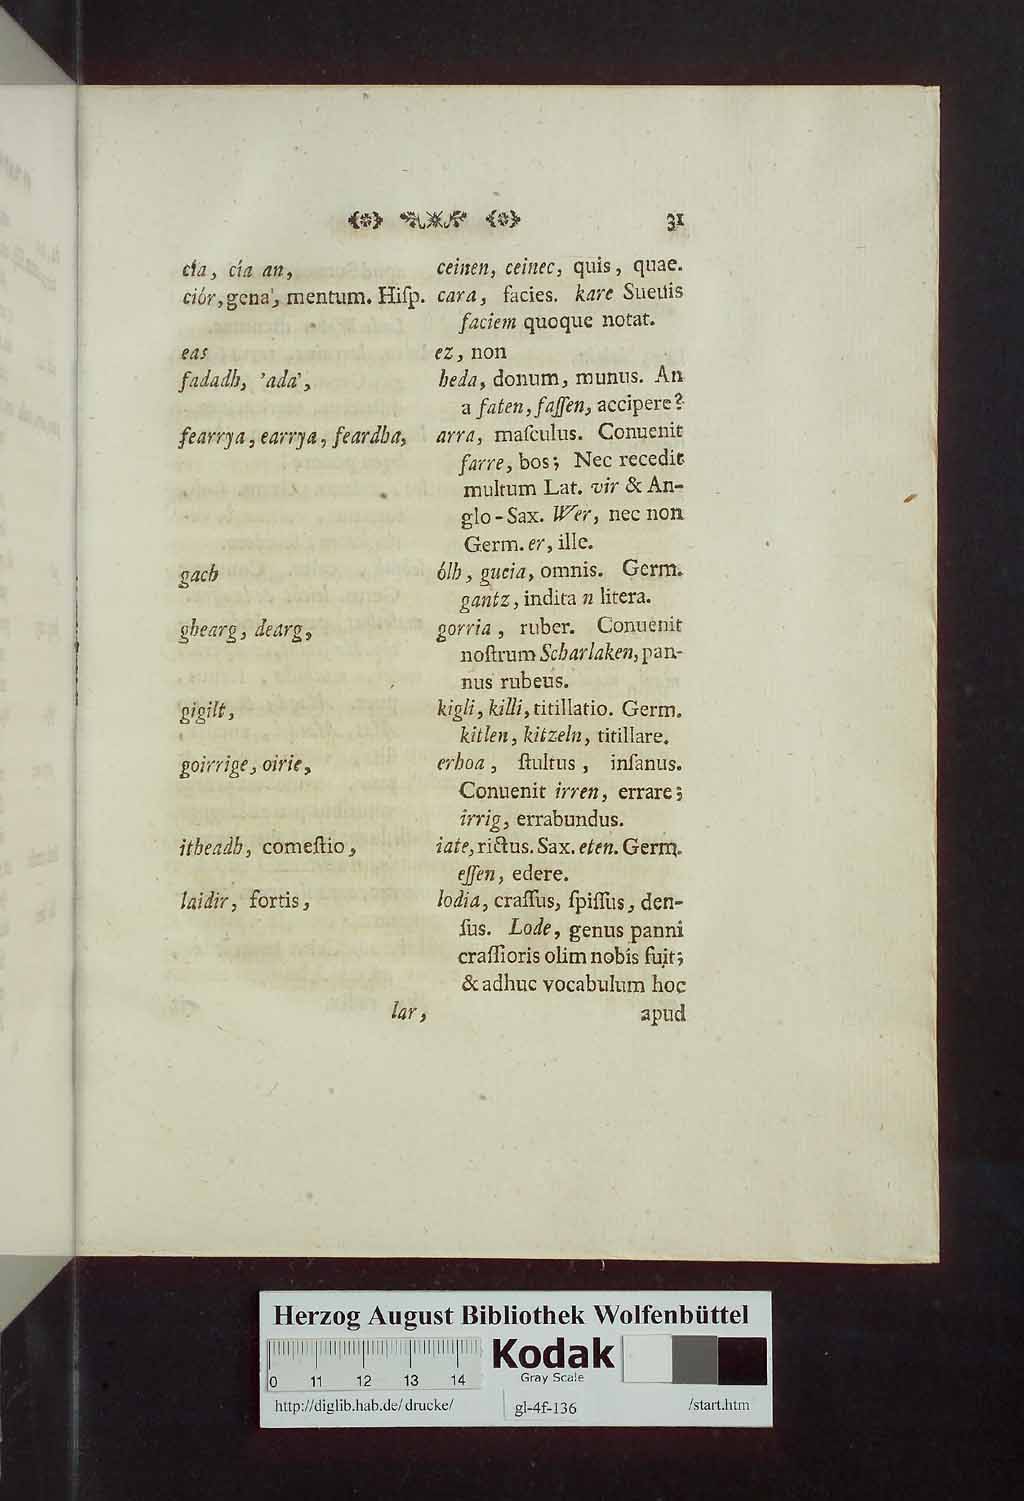 31
cia, cía an, ceinen, ceinec, quis, quae.
ciór, gena, mentum. Hiſp. cara, facies. kare Sueuis
faciem quoque notat.
eas ez, non
fadadh, 'ada', heda, donum, munus. An
a faten, faſſen, accipere?
fearrya, earrya, feardha, arra, maſculus. Conuenit
farre, bos; Nec recedit
multum Lat. vir & An-
glo-Sax. Wer, nec non
Germ. er, ille.
gach ólh, gueia, omnis. Germ.
gantz, indita n litera.
ghearg, dearg, gorria, ruber. Conuenit
noſtrum Scharlaken, pan-
nus rubeus.
gigilt, kigli, killi, titillatio. Germ.
kitlen, kitzeln, titillare.
goirrige, oirie, erhoa, ſtultus, inſanus.
Conuenit irren, errare;
irrig, errabundus.
itheadh, comeſtio, iate, rictus. Sax. eten. Germ.
eſſen, edere.
laidir, fortis, lodia, craſſus, ſpiſſus, den-
ſus. Lode, genus panni
craſſioris olim nobis fuit;
& adhuc vocabulum hoc
lar, apud
Herzog August Bibliothek Wolfenbüttel
Kodak
Gray Scale
0 11 12 13 14
http://diglib.hab.de/drucke/ gl-4f-136 /start.htm